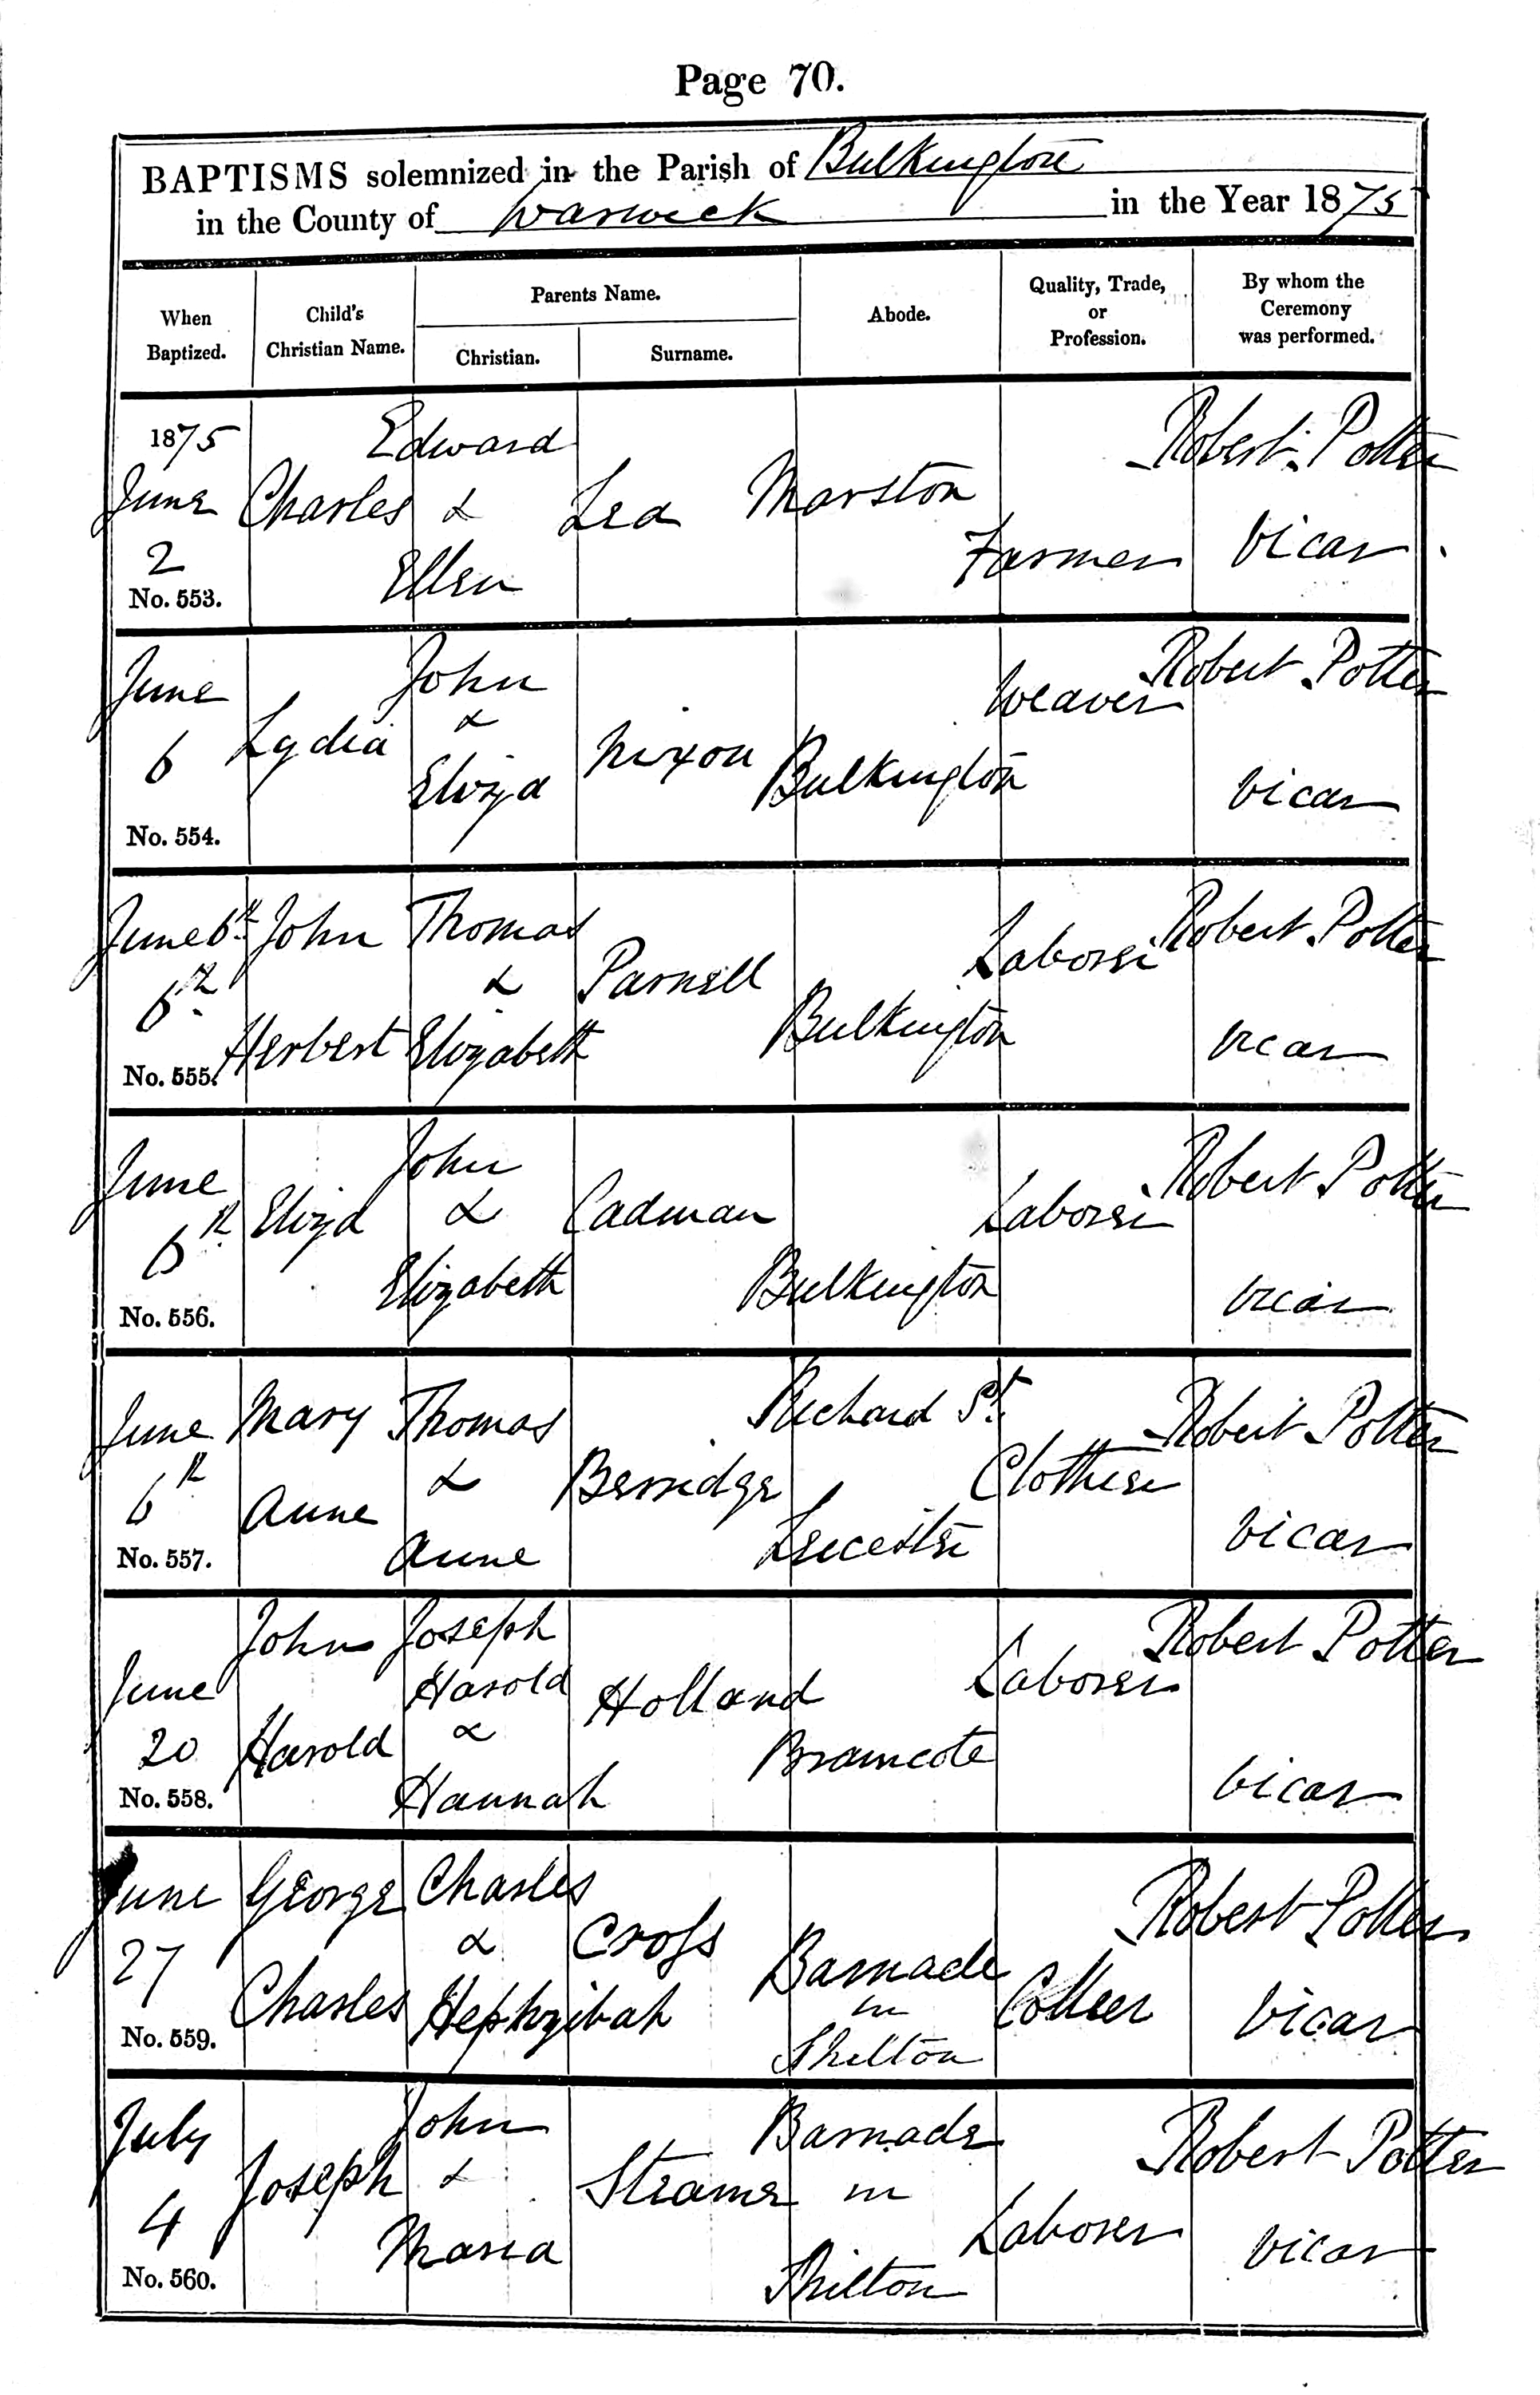 Page 70.
BAPTISMS solemnized in the Parish of Bulkington
in the County of Warwick in the Year 1875
When Baptized.
Child's Christian Name.
Parents Name.
Christian.
Surname.
Abode.
Quality, Trade, or Profession.
By whom the Ceremony was performed.
1875
June
2
No. 553.
Charles
Edward
&
Ellen
Lea
Marston
Farmer
Robert Potter
Vicar
June
6
No. 554.
Lydia
John
&
Eliza
Nixon
Bulkington
Weaver
Robert Potter
Vicar
June 6th
6th
No. 555.
John
Herbert
Thomas
&
Elizabeth
Parnell
Bulkington
Laborer
Robert Potter
Vicar
June
6th
No. 556.
Eliza
John
&
Elizabeth
Cadman
Bulkington
Laborer
Robert Potter
Vicar
June
6th
No. 557.
Mary
Anne
Thomas
&
Anne
Berridge
Richard St.
Leicester
Clothier
Robert Potter
Vicar
June
20
No. 558.
John
Harold
Joseph
Harold
&
Hannah
Holland
Bramcote
Laborer
Robert Potter
Vicar
June
27
No. 559.
George
Charles
Charles
&
Hephzibah
Cross
Barnacle
in
Shilton
Collier
Robert Potter
Vicar
July
4
No. 560.
Joseph
John
&
Maria
Barnacle
in
Shilton
Laborer
Robert Potter
Vicar